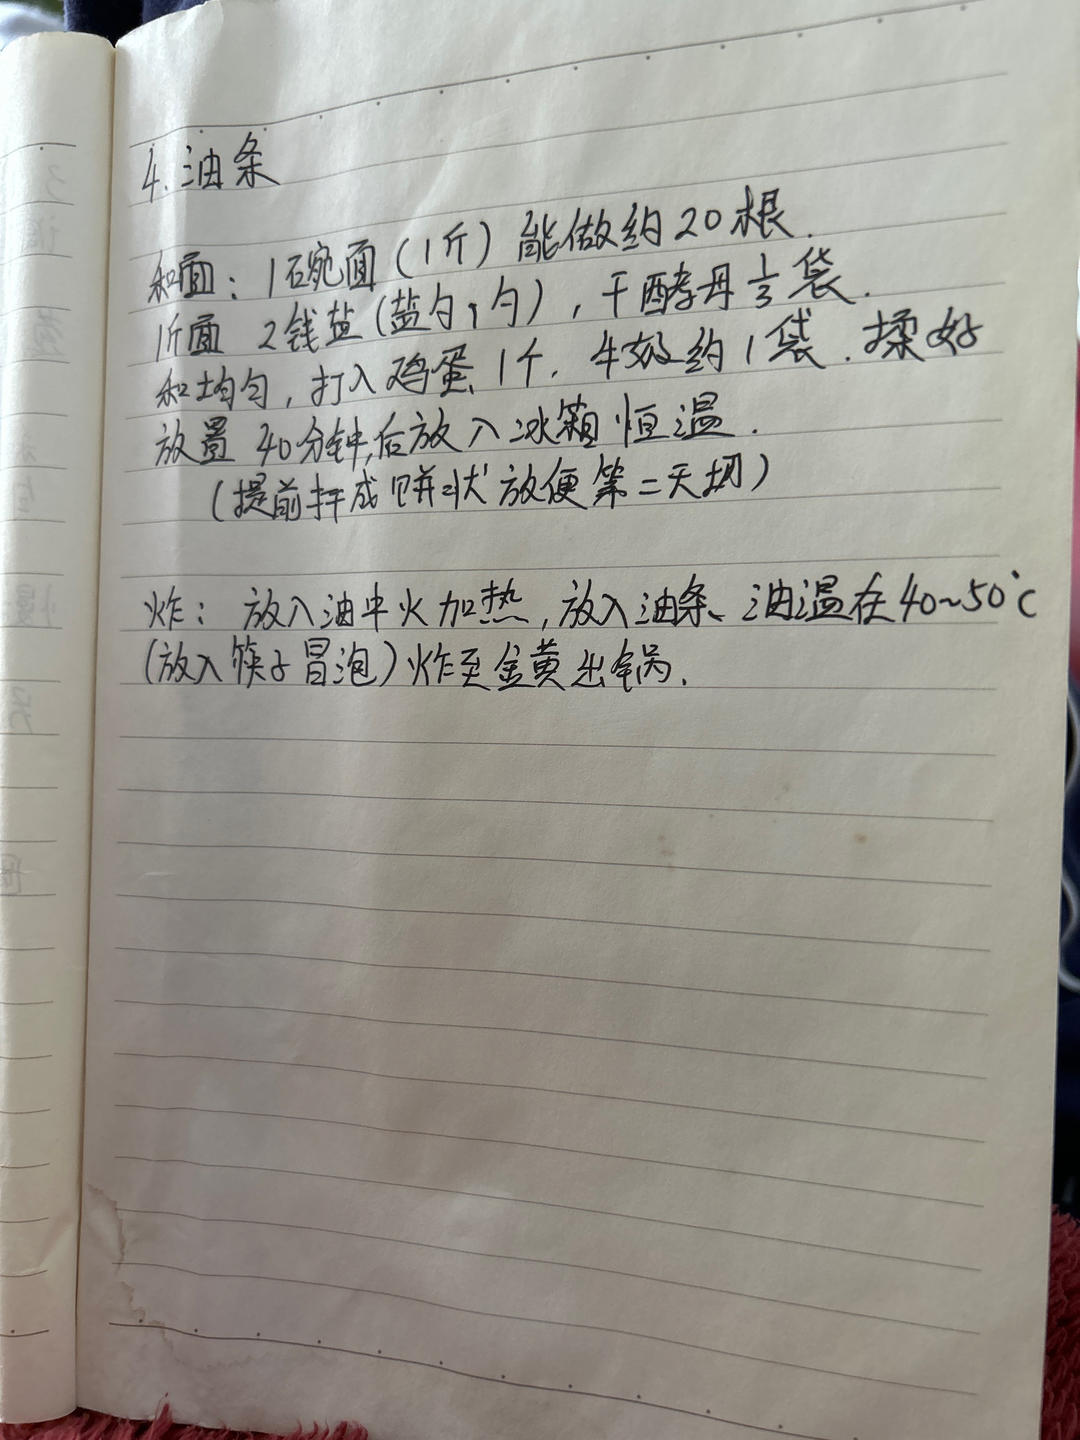 4. 油条
和面：1碗面（1斤）能做约20根.
1斤面 2钱盐（盐勺1勺），干酵母⅓袋.
和均匀，打入鸡蛋1个. 牛奶约1袋. 揉好
放置40分钟,后放入冰箱恒温.
（提前拼成饼状放便第二天切）
炸：放入油中火加热，放入油条、油温在40~50°C
（放入筷子冒泡）炸至金黄出锅.